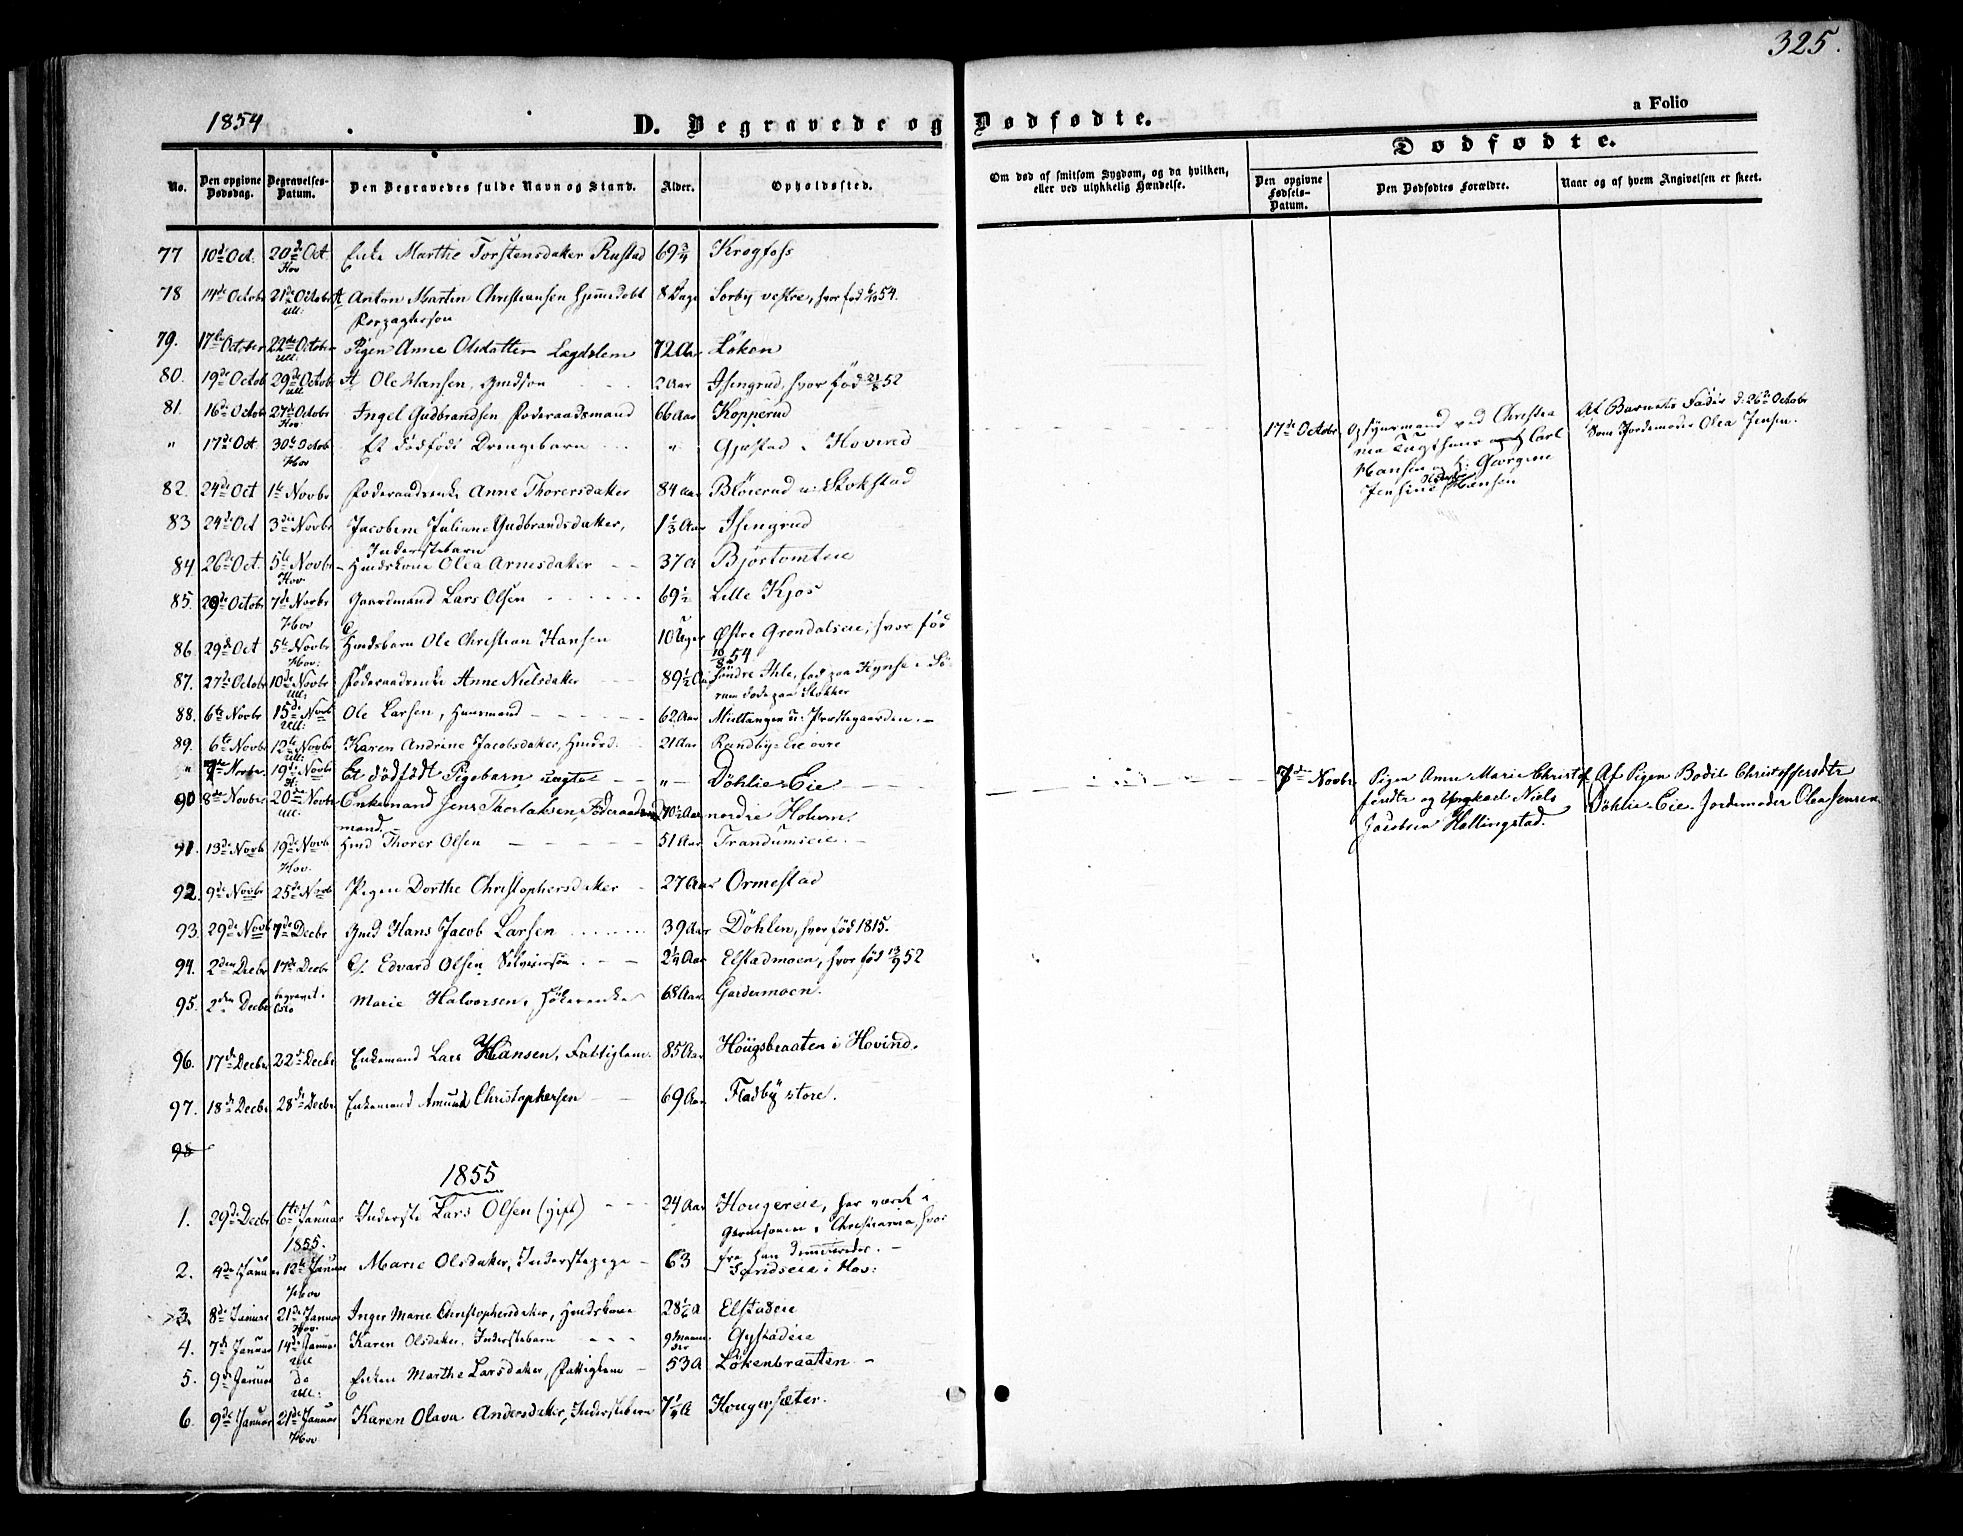 325.
a Folio
1854
D. Begravede og Dødfødte.
Dødfødte.
No.
Den opgivne Dødsdag.
Begravelses-Datum.
Den Begravedes fulde Navn og Stand.
Alder.
Opholdssted.
Om død af smitsom Sygdom, og da hvilken,
eller ved ulykkelig Hændelse.
Den opgivne Fødsels-Datum.
Den Dødfødtes Forældre.
Naar og af hvem Angivelsen er skeet.
77 10de Oct. 20de Oct. Enke Marthe Torstensdatter Rustad 69 3/4 Krogfoss
Hov
78 14de Octobr 21de Octobr Anton Martin Christiansen 8 Dage Sorby vestre, hvor fød 6/10 54.
Ull:
79. 17de October 22de October Pigen Anne Olsdatter Lægdslem 72 Aar Løken
Ull:
80. 19de Octob 29de Octob Ole Hansen, Gmdsøn 2 Aar Isengrud, hvor fød 52
Ull:
81. 16de Octobr 27de Octobr Ingel Gudbrandsen Føderaadsmand 66 Aar Kopperud
Hov
" 17de Oct. 30te Octob Et dödfödt Drengebarn " Gjestad i Hovind
Hov
17de Octobr
ved Christia
Carl
Hansen og H: Georgine
Jensine Hansen
Af Barnets Fader d: 26de Octobr
Som Jordemoder Olea Jensen.
82. 24de Oct 1te Novbr Føderaadsenke Anne Thorersdatter 84 Aar Bløierud u: Slokstad
83 24de Oct 3die Novbr Jacobine Juliane Gudbrandsdatter, 1 1/3 Aar Isengrud
Inderstebarn
84 26de Oct. 5te Novbr Hmdskone Olea Arnesdatter 37 A Bjørtomteie
Hov
85. 29de Octobr 7de Novbr Gaardmand Lars Olsen 69 1/2 Lille Kjos
Hov
86. 29de Oct 5te Novbr Hmdsbarn Ole Christian Hansen 10 Uger Østre Grøndalseie, hvor fød
Hov: 54
87. 27de Octobr 10de Novbr Føderaadsenke Anne Nielsdatter 89 1/2 Aar Søndre Ihle, fød paa Kynse i Sö-
Ull: rum døde paa Slokker
88. 6te Novbr 15de Novb Ole Larsen, Huusmand 62 Aar Mieltangen u: Præstegaarden.
Ull:
89. 6te Novbr 12te Novbr Karen Andrine Jacobsdatter, Hmdsd. 21 Aar Randby-Eie övre
Ull:
" 7de Novbr. 19de Novbr Et dödfödt Pigebarn uægte " Döhlie-Eie
7de Novbr
Pigen Anne Marie Christof
fersdtr og Ungkarl Niels
Jacobsen Hallingstad.
Af Pigen Bodil Christoffersdtr
Döhlie-Eie. Jordemoder Olea Jensen
90 8de Novbr. 20de Novbr Enkemand Jens Thorlaksen, Föderaads 70 1/2 Aar nordre Holum.
Ull: mand.
91. 13de Novb 19de Novb Hmd Thorer Olsen 51 Aar Trandumseie.
Hov.
92. 9de Novbr 25de Novb Pigen Dorthe Christophersdatter 27 Aar Ormestad
93. 29de Novb 7de Decbr Gmd Hans Jacob Larsen 39 Aar Döhlen, hvor fød 1815.
94. 2den Decbr 17de Decbr Edvard Olsen Selveiersøn 2 1/4 Aar Elstadmoen, hvor fød 13/9 52
95. 2den Decbr begravet Marie Halvorsen, Hökerenke 68 Aar. Gardermoen.
96. 17de Decbr 22de Decbr Enkemand Lars Hansen, Fattiglem. 85 Aar Höugsbraaten i Hovind.
97. 18de Decbr 28de Decbr Enkemand Amund Christophersen 69 Aar Fladby store.
98
1855
1. 29de Decbr 6te Januar Inderste Lars Olsen (gift) 24 Aar Hougereie, har været i
1855. Garnisonen i Christiania, hvor
fra han dimitteredes.
2. 4de Januar 12te Januar Marie Olsdatter, Inderstepige 63 i Hov:
Hov
3. 8de Januar 21de Januar Inger Marie Christophersdatter, Hmdskone 28 1/2 A Elstadeie
Hov.
4. 7de Januar 14de Januar Karen Olsdatter, Inderstebarn 9 Maaneder Gystadeie
Ull
5. 9de Januar do Enken Marthe Larsdatter, Fattiglem 53 A Lökenbraatten
Ull:
6. 9de Januar 21de Januar Karen Olava Andersdatter, Inderstebarn 7 1/4 A Hougersæter.
Hov